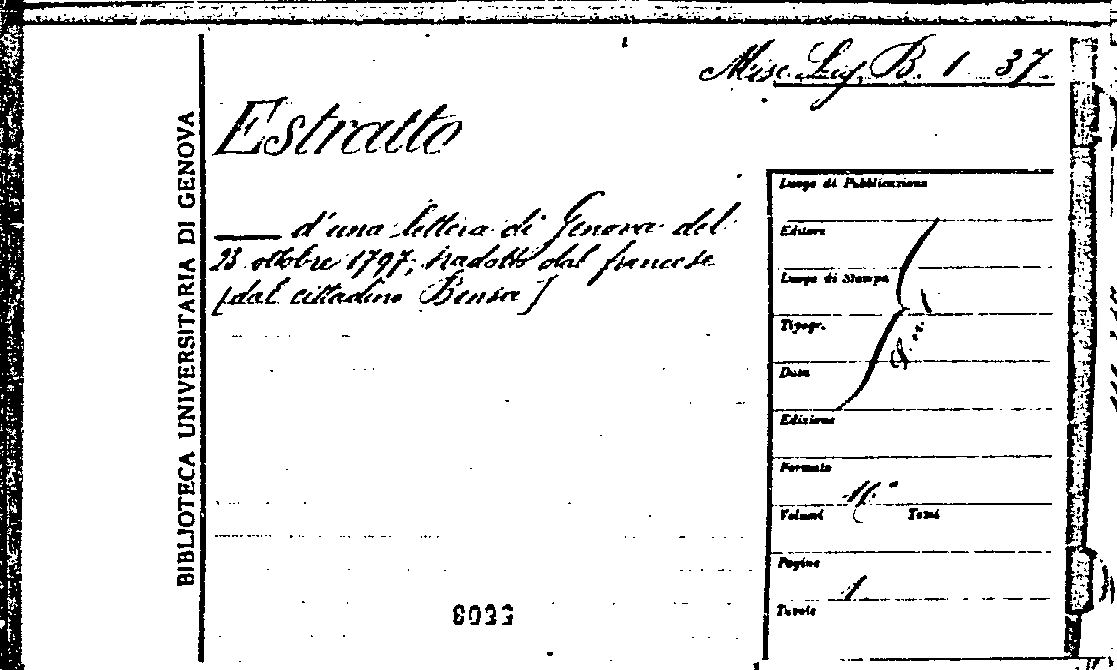 Misc. Lig. B. 1 37
BIBLIOTECA UNIVERSITARIA DI GENOVA
Estratto
d'una lettera di Genova del
23 ottobre 1797, tradotto dal francese
[dal cittadino Bensa]
Luogo di Pubblicazione
Editore
Luogo di Stampa
Tipogr.
Data
Edizione
Formato
Volumi Tomi
Pagine
1
Tavole